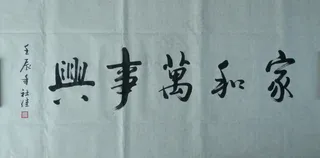 家和萬事興
壬辰年